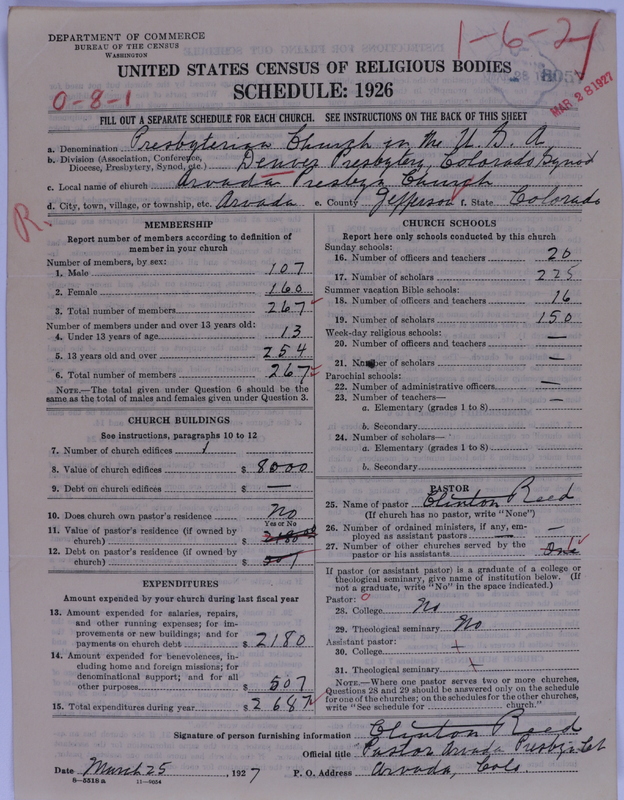 DEPARTMENT OF COMMERCE
BUREAU OF THE CENSUS
WASHINGTON
1-6-2-1
8507
MAR 28 1927
UNITED STATES CENSUS OF RELIGIOUS BODIES
SCHEDULE: 1926
0-8-1
FILL OUT A SEPARATE SCHEDULE FOR EACH CHURCH. SEE INSTRUCTIONS ON THE BACK OF THIS SHEET
a. Denomination Presbyterian Church in the U. S. A
b. Division (Association, Conference, Diocese, Presbytery, Synod, etc.) Denver Presbytery, Colorado Synod
c. Local name of church Arvada Presbyn Church
d. City, town, village, or township, etc. Arvada e. County Jefferson f. State Colorado
R.
MEMBERSHIP
Report number of members according to definition of
member in your church
Number of members, by sex:
1. Male 107
2. Female 160
3. Total number of members 267
Number of members under and over 13 years old:
4. Under 13 years of age 13
5. 13 years old and over 254
6. Total number of members 267
NOTE.—The total given under Question 6 should be
the same as the total of males and females given under Question 3.
CHURCH BUILDINGS
See instructions, paragraphs 10 to 12
7. Number of church edifices 1
8. Value of church edifices $ 8000
9. Debt on church edifices $ —
10. Does church own pastor's residence No
Yes or No
11. Value of pastor's residence (if owned by
church) $ 2180
12. Debt on pastor's residence (if owned by
church) $ 507
EXPENDITURES
Amount expended by your church during last fiscal year
13. Amount expended for salaries, repairs,
and other running expenses; for im-
provements or new buildings; and for
payments on church debt $ 2180
14. Amount expended for benevolences, in-
cluding home and foreign missions; for
denominational support; and for all
other purposes $ 507
15. Total expenditures during year $ 2687
CHURCH SCHOOLS
Report here only schools conducted by this church
Sunday schools:
16. Number of officers and teachers 20
17. Number of scholars 225
Summer vacation Bible schools:
18. Number of officers and teachers 16
19. Number of scholars 150
Week-day religious schools:
20. Number of officers and teachers —
21. Number of scholars —
Parochial schools:
22. Number of administrative officers —
23. Number of teachers—
a. Elementary (grades 1 to 8) —
b. Secondary
24. Number of scholars—
a. Elementary (grades 1 to 8)
b. Secondary
PASTOR
25. Name of pastor Clinton Reed
(If church has no pastor, write "None")
26. Number of ordained ministers, if any, em-
ployed as assistant pastors —
27. Number of other churches served by the
pastor or his assistants One
If pastor (or assistant pastor) is a graduate of a college or
theological seminary, give name of institution below. (If
not a graduate, write "No" in the space indicated.)
Pastor: 0
28. College No
29. Theological seminary No
Assistant pastor:
30. College +
31. Theological seminary +
NOTE.—Where one pastor serves two or more churches,
Questions 28 and 29 should be answered only on the schedule
for one of the churches; on the schedules for the other churches,
write "See schedule for church."
Signature of person furnishing information Clinton Reed
Official title Pastor Arvada Presbyn Ch
Date March 25, 1927 P. O. Address Arvada, Colo.
8-5518 a 11-9054